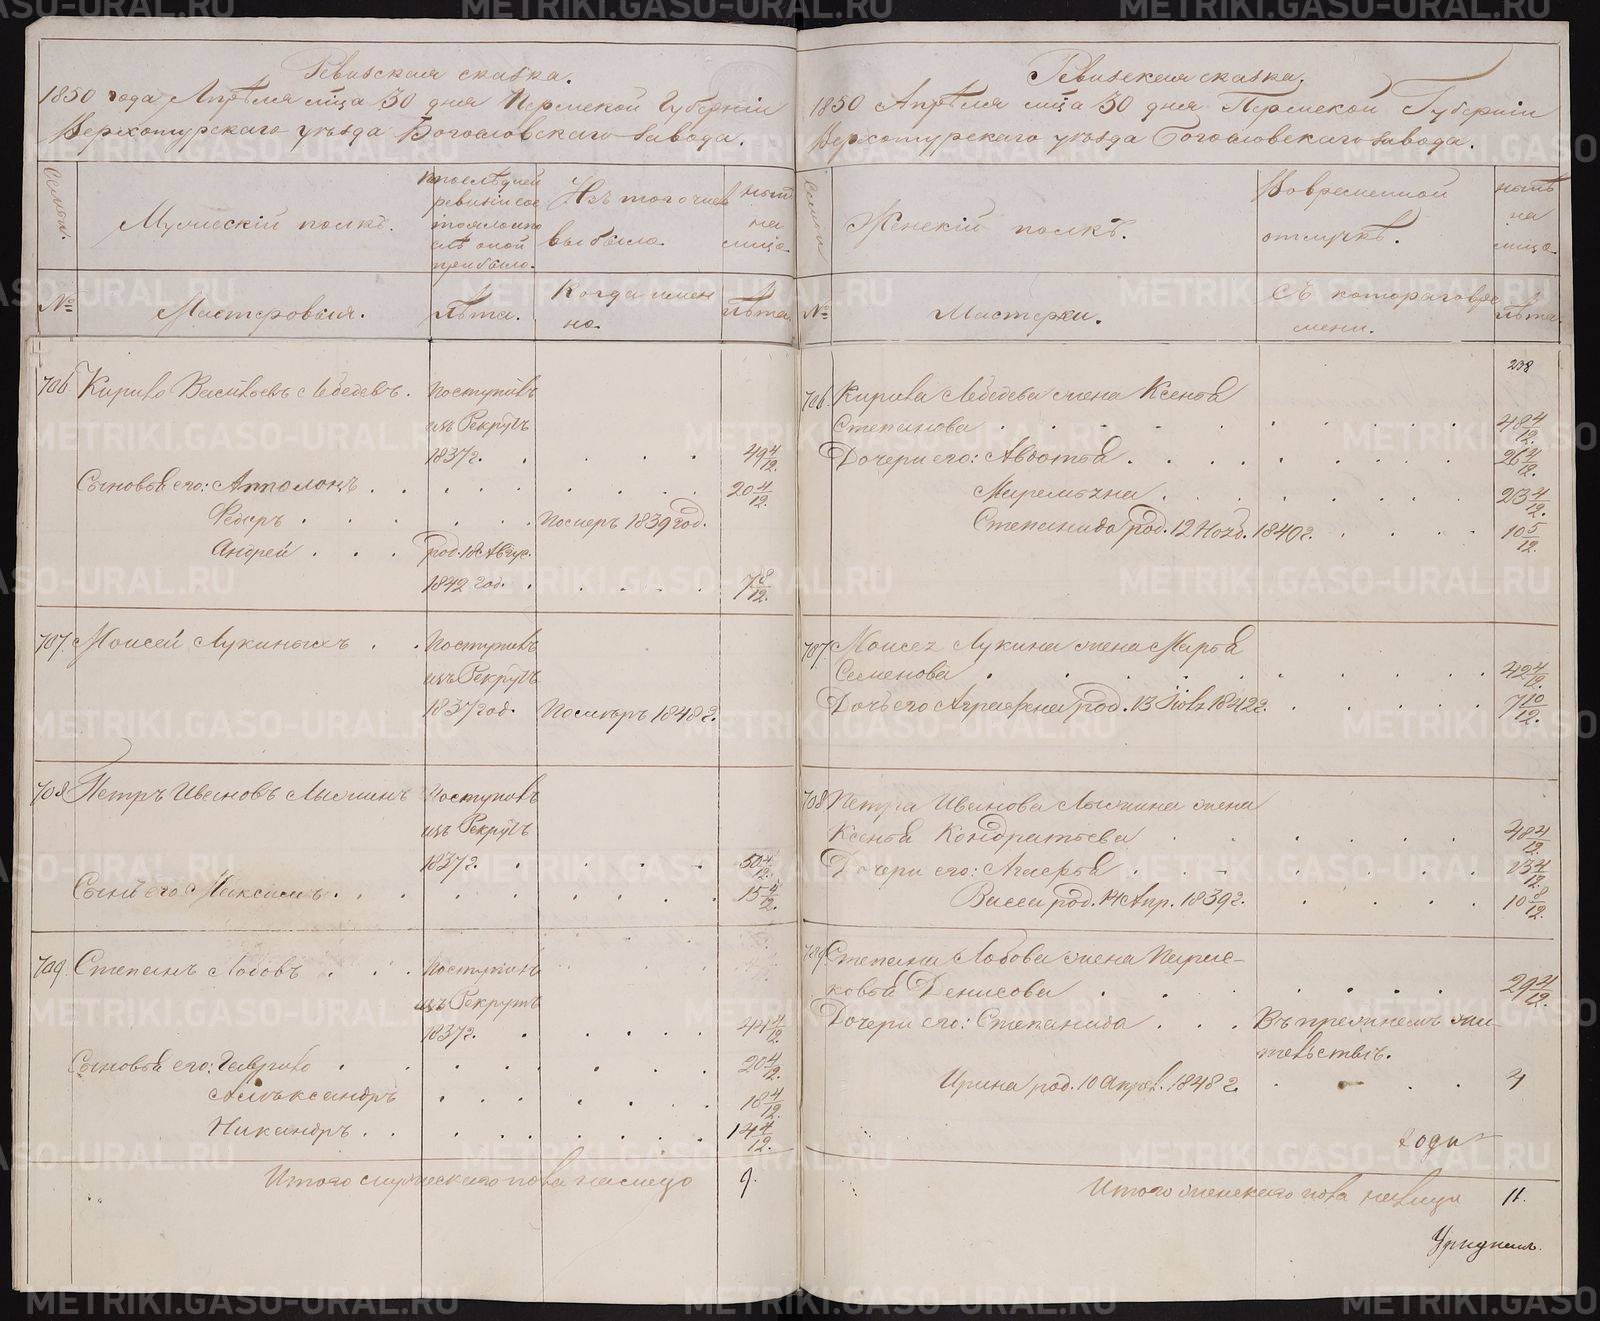 Ревизская сказка.
1850 года Апрѣля м͠ца 30 дня Пермской Губерніи
Верхотурскаго уѣзда Богословскаго завода.
Семьи.
Мужескій полкъ.
По последней
ревизіи сос
тояло и по
слѣ оной
прибыло.
Изъ того числа
выбыло.
Нынѣ
на
лицо.
№
Мастеровыя.
Лѣта.
Когда имен
но.
Лѣта.
706 Кирило Васильевъ Лебедевъ. Поступивъ
изъ Рекрутъ
1837 г. 49 4/12.
Сыновья его: Апполонъ 20 4/12.
Федеръ Померъ 1839 год.
Андрей род. 18 Авгус.
1842 год. 7 8/12.
707. Моисей Лукиныхъ Поступивъ
изъ Рекрутъ
1837 год. Померъ 1848 г.
708 Петръ Ивановъ Лыжинъ Поступивъ
изъ Рекрутъ
1837 г. 50 4/12.
Сынъ его Максимъ. 15 4/12.
709. Степанъ Лобовъ Поступивъ
изъ Рекрутъ
1837 г. 44 4/12.
Сыновья его: Гаврило 20 4/12.
Алѣксандръ 18 4/12.
Никандръ. 14 4/12.
Итого мужескаго пола налицо 9.
Ревизская сказка.
1850 Апрѣля м͠ца 30 дня Пермской Губерніи
Верхотурскаго уѣзда Богословскаго завода.
Семьи
Женскій полкъ.
Вовременной
отлучкѣ.
Нынѣ
на
лицо.
№
Мастерки.
Съ котораго вре
мени.
Лѣта.
238
706. Кирила Лебедева жена Ксенья
Степанова 48 4/12.
Дочери его: Авдотья 26 4/12.
Маремьяна 23 4/12.
Степанида род. 12 Нояб. 1840 г. 10 5/12.
707 Моисея Лукина жена Марья
Семенова 42 4/12.
Дочь его Аграфена род. 13 Іюля 1842 г. 7 10/12.
708 Петра Иванова Лыжина жена
Ксенья Кондратьева 48 4/12.
Дочери его: Агафья 23 4/12.
Васса род. 14 Апр. 1839 г. 10 8/12.
709 Степана Лобова жена Параc-
ковья Денисова 29 4/12.
Дочери его: Степанида Въ прежнемъ жи-
тельствѣ.
Ирина род. 10 Апрел. 1848 г.
года
Итого женскаго пола налицо 11.